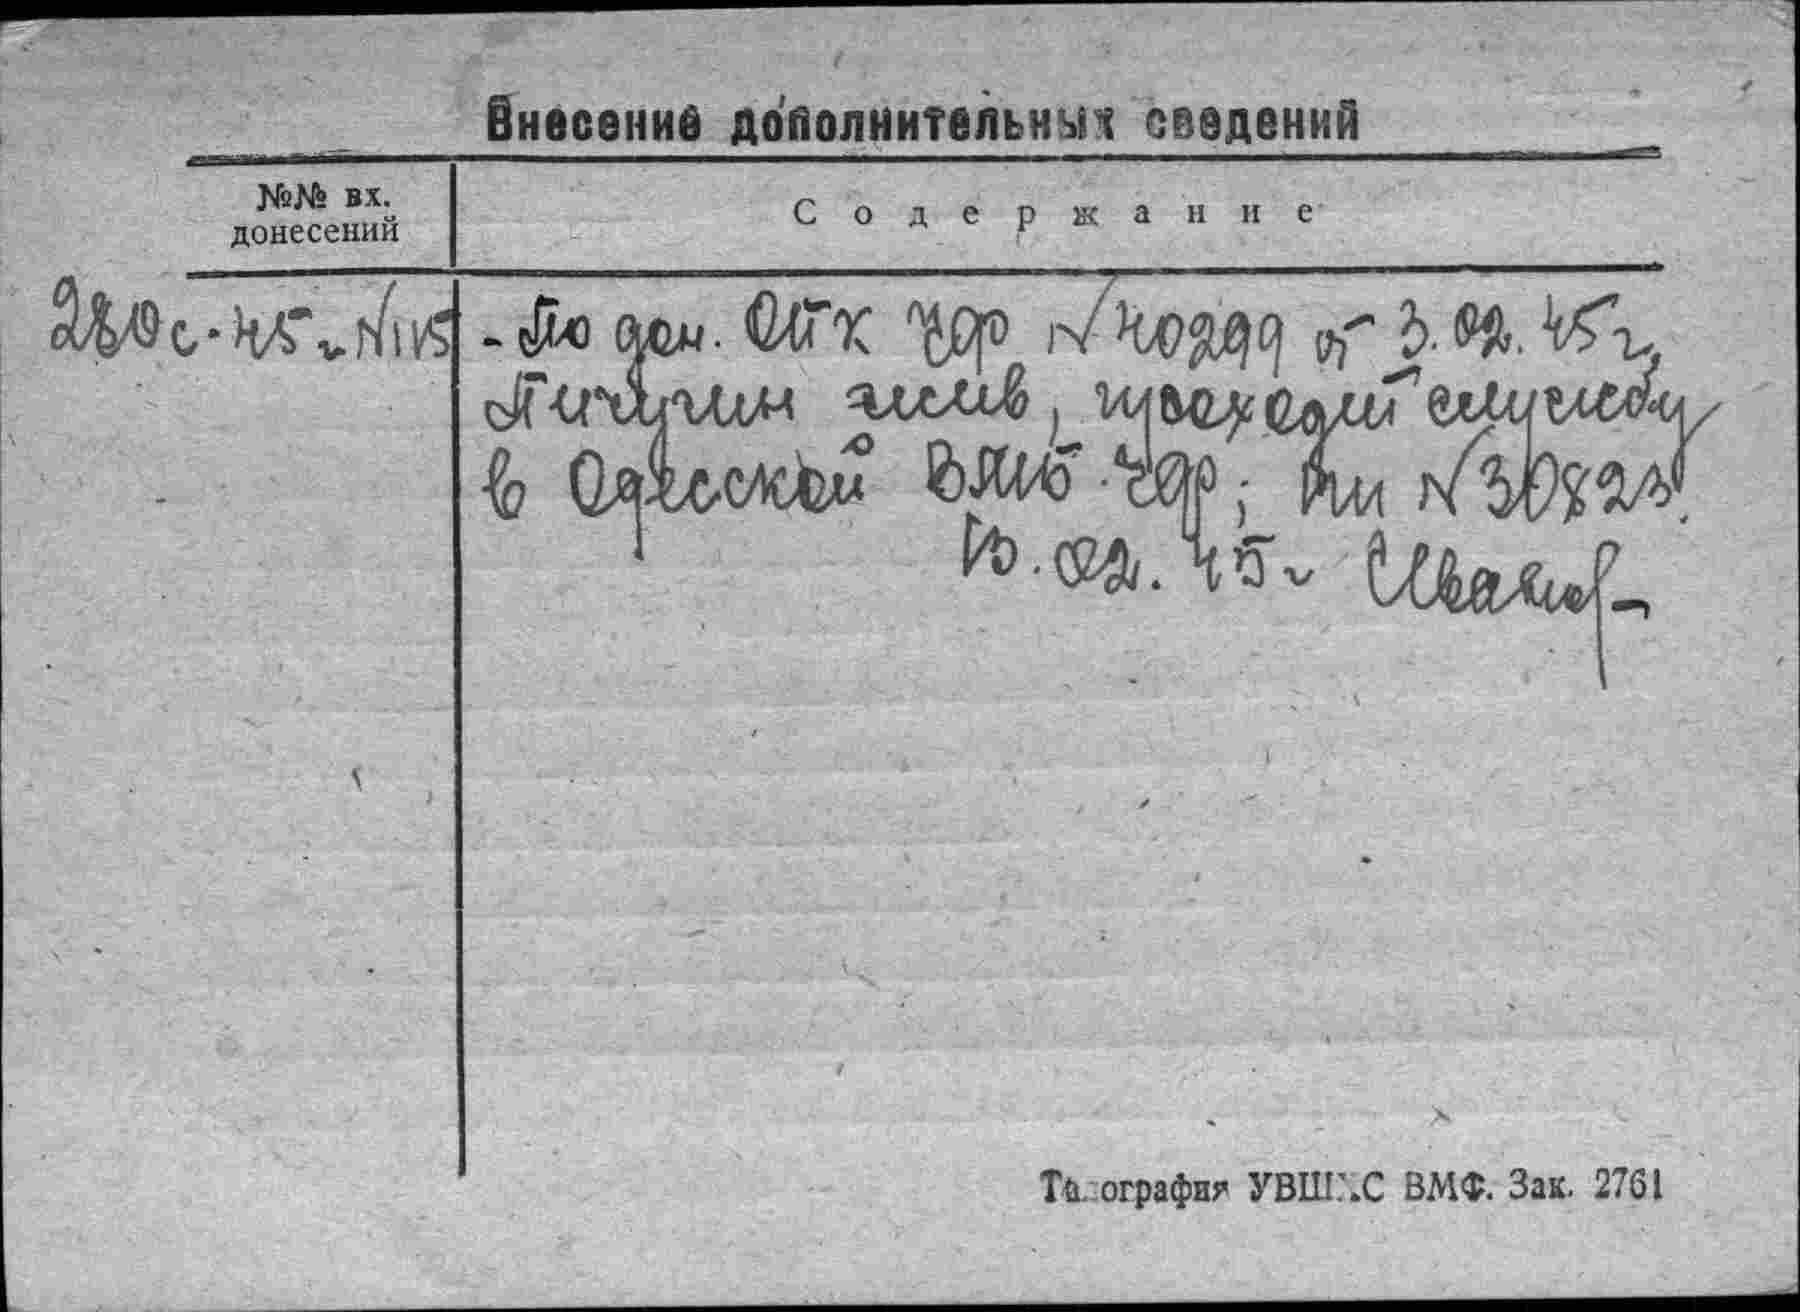 Внесение дополнительных сведений
№№ вх.
донесений
Содержание
2810с-45г. №115
- По дон. ОПК ЧФ №40299 от 3.02.45г,
Пичугин жив, проходит службу
в Одесской ВМБ ЧФ; пп №30823.
13.02.45г Иванов
Типография УВШКС ВМФ. Зак. 2761